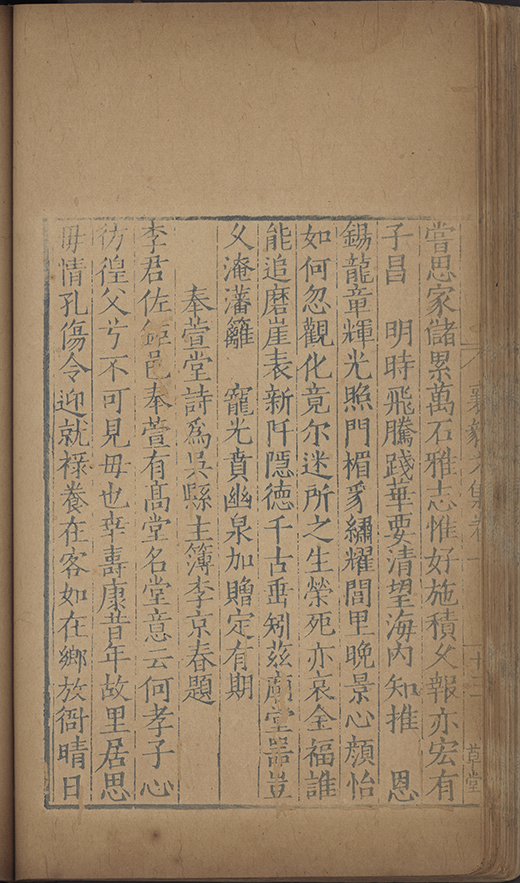 嘗思家儲累萬石雅志惟好施積久報亦宏有
子昌　明時飛騰踐華要清望海內知推　恩
錫龍章輝光照門楣豸繡耀閭里晚景心顏怡
如何忽觀化竟尓迷所之生榮死亦哀全福誰
能追磨崖表新阡隱德千古垂矧茲廟堂器豈
久淹藩籬　寵光賁幽泉加贈定有期
奉萱堂詩爲吳縣主簿李京春題
李君佐邑奉萱有高堂名堂意云何孝子心
彷徨父兮不可見毋也幸壽康昔年故里居思
毋情孔傷令迎就祿養在客如在鄉放衙晴日
文集卷一
十二
草堂